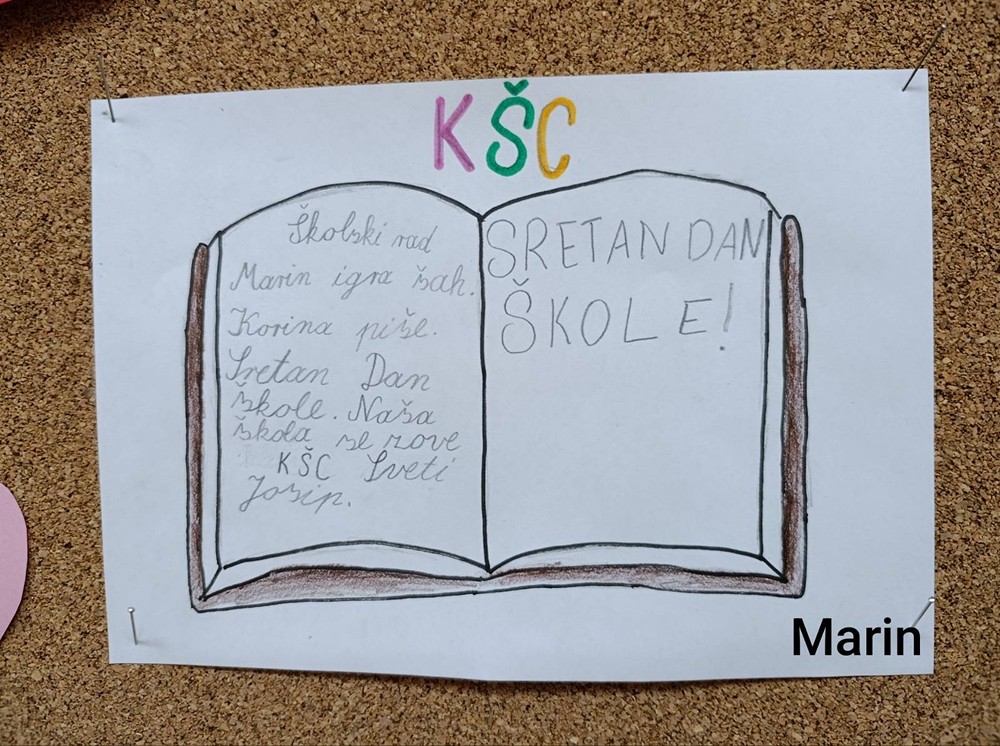 KŠC
Školski rad
Marin igra šah.
Korina piše.
Sretan Dan
škole. Naša
škola se zove
KŠC Sveti
Josip.
SRETAN DAN
ŠKOLE!
Marin